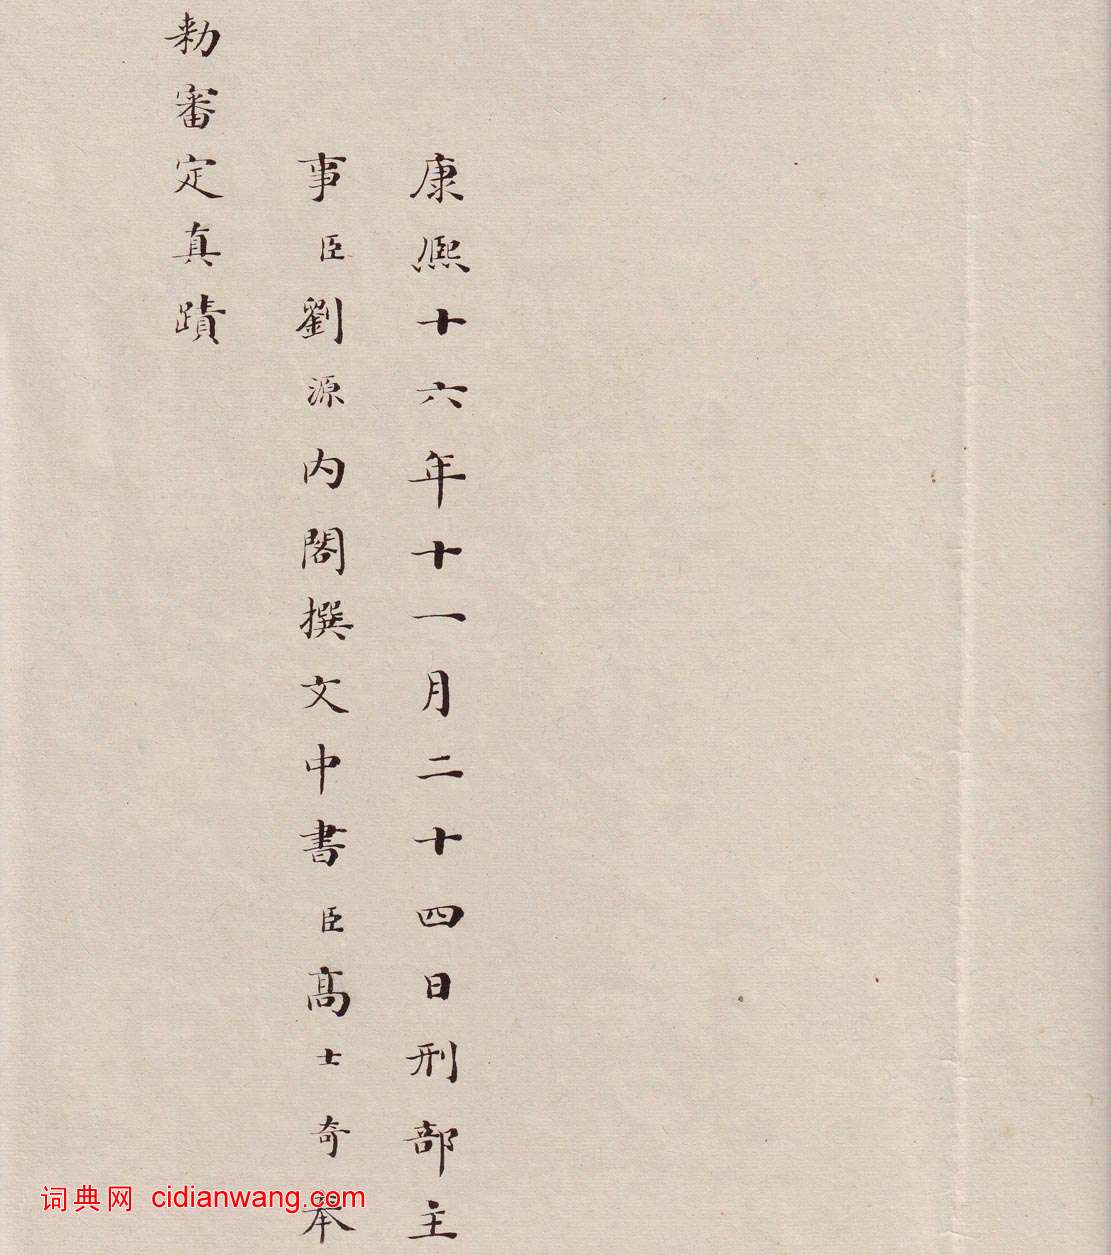 康熈十六年十一月二十四日刑部主
事臣劉源内閣撰文中書臣髙士奇奉
勅審定真蹟
词典网 cidianwang.com